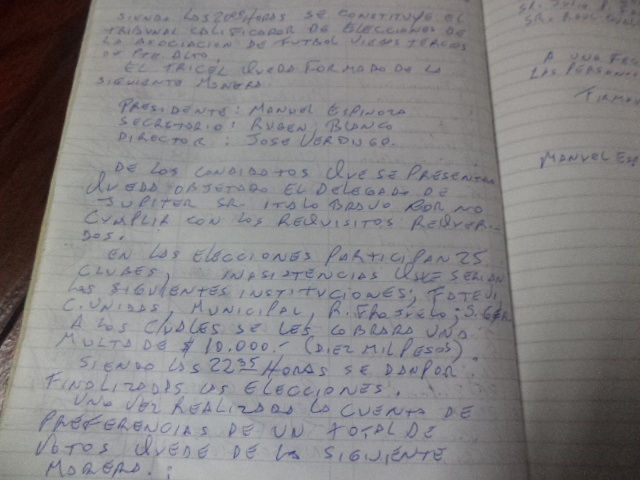 SIENDO LAS 20 HORAS SE CONSTITUYE EL
TRIBUNAL CALIFICADOR DE ELECCIONES DE
LA ASOCIACION DE FUTBOL VIEJOS TERCIOS
DE PTE ALTO.
EL TRICEL QUEDA FORMADO DE LA
SIGUIENTE MANERA.
PRESIDENTE: MANUEL ESPINOZA
SECRETARIO: RUBEN BLANCO
DIRECTOR: JOSE VERDUGO.
DE LOS CANDIDATOS QUE SE PRESENTAN
QUEDA OBJETADO EL DELEGADO DE
JUPITER SR. ITALO POR NO
CUMPLIR CON LOS REQUISITOS REQUERI-
DOS.
EN LAS ELECCIONES PARTICIPAN 25
CLUBES, INASISTENCIAS QUE SERIAN
LAS SIGUIENTES INSTITUCIONES,
C. UNIDAS, MUNICIPAL,
A LOS CUALES SE LES COBRARA UNA
MULTA DE $10.000.- (DIEZ MIL PESOS).
SIENDO LAS 22 35 HORAS SE DAN POR
FINALIZADAS LAS ELECCIONES.
UNA VEZ REALIZADA LA CUENTA DE
PREFERENCIAS DE UN TOTAL DE
VOTOS QUEDE DE LA SIGUIENTE
MANERA.:
A UNA
LAS PERSONA
FIRMA
MANUEL ESP